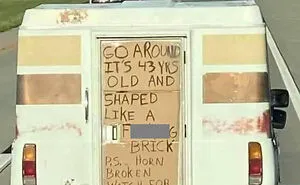 GO AROUND
IT'S 43 YRS
OLD AND
SHAPED
LIKE A
F G
BRICK
P.S. HORN
BROKEN
WATCH FOR